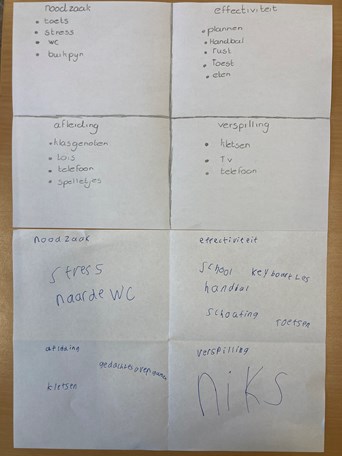 noodzaak
• toets
• stress
• wc
• buikpijn
effectiviteit
• plannen
• Handbal
• rust
• Toest
• eten
afleiding
• klasgenoten
• Lois
• telefoon
• spelletjes
verspilling
• kletsen
• TV
• telefoon
noodzaak
stress
naar de WC
effectiviteit
school keyboart les
handbal
schouting
toetsen
afleiding
gedachtes over gamen
kletsen
verspilling
niks